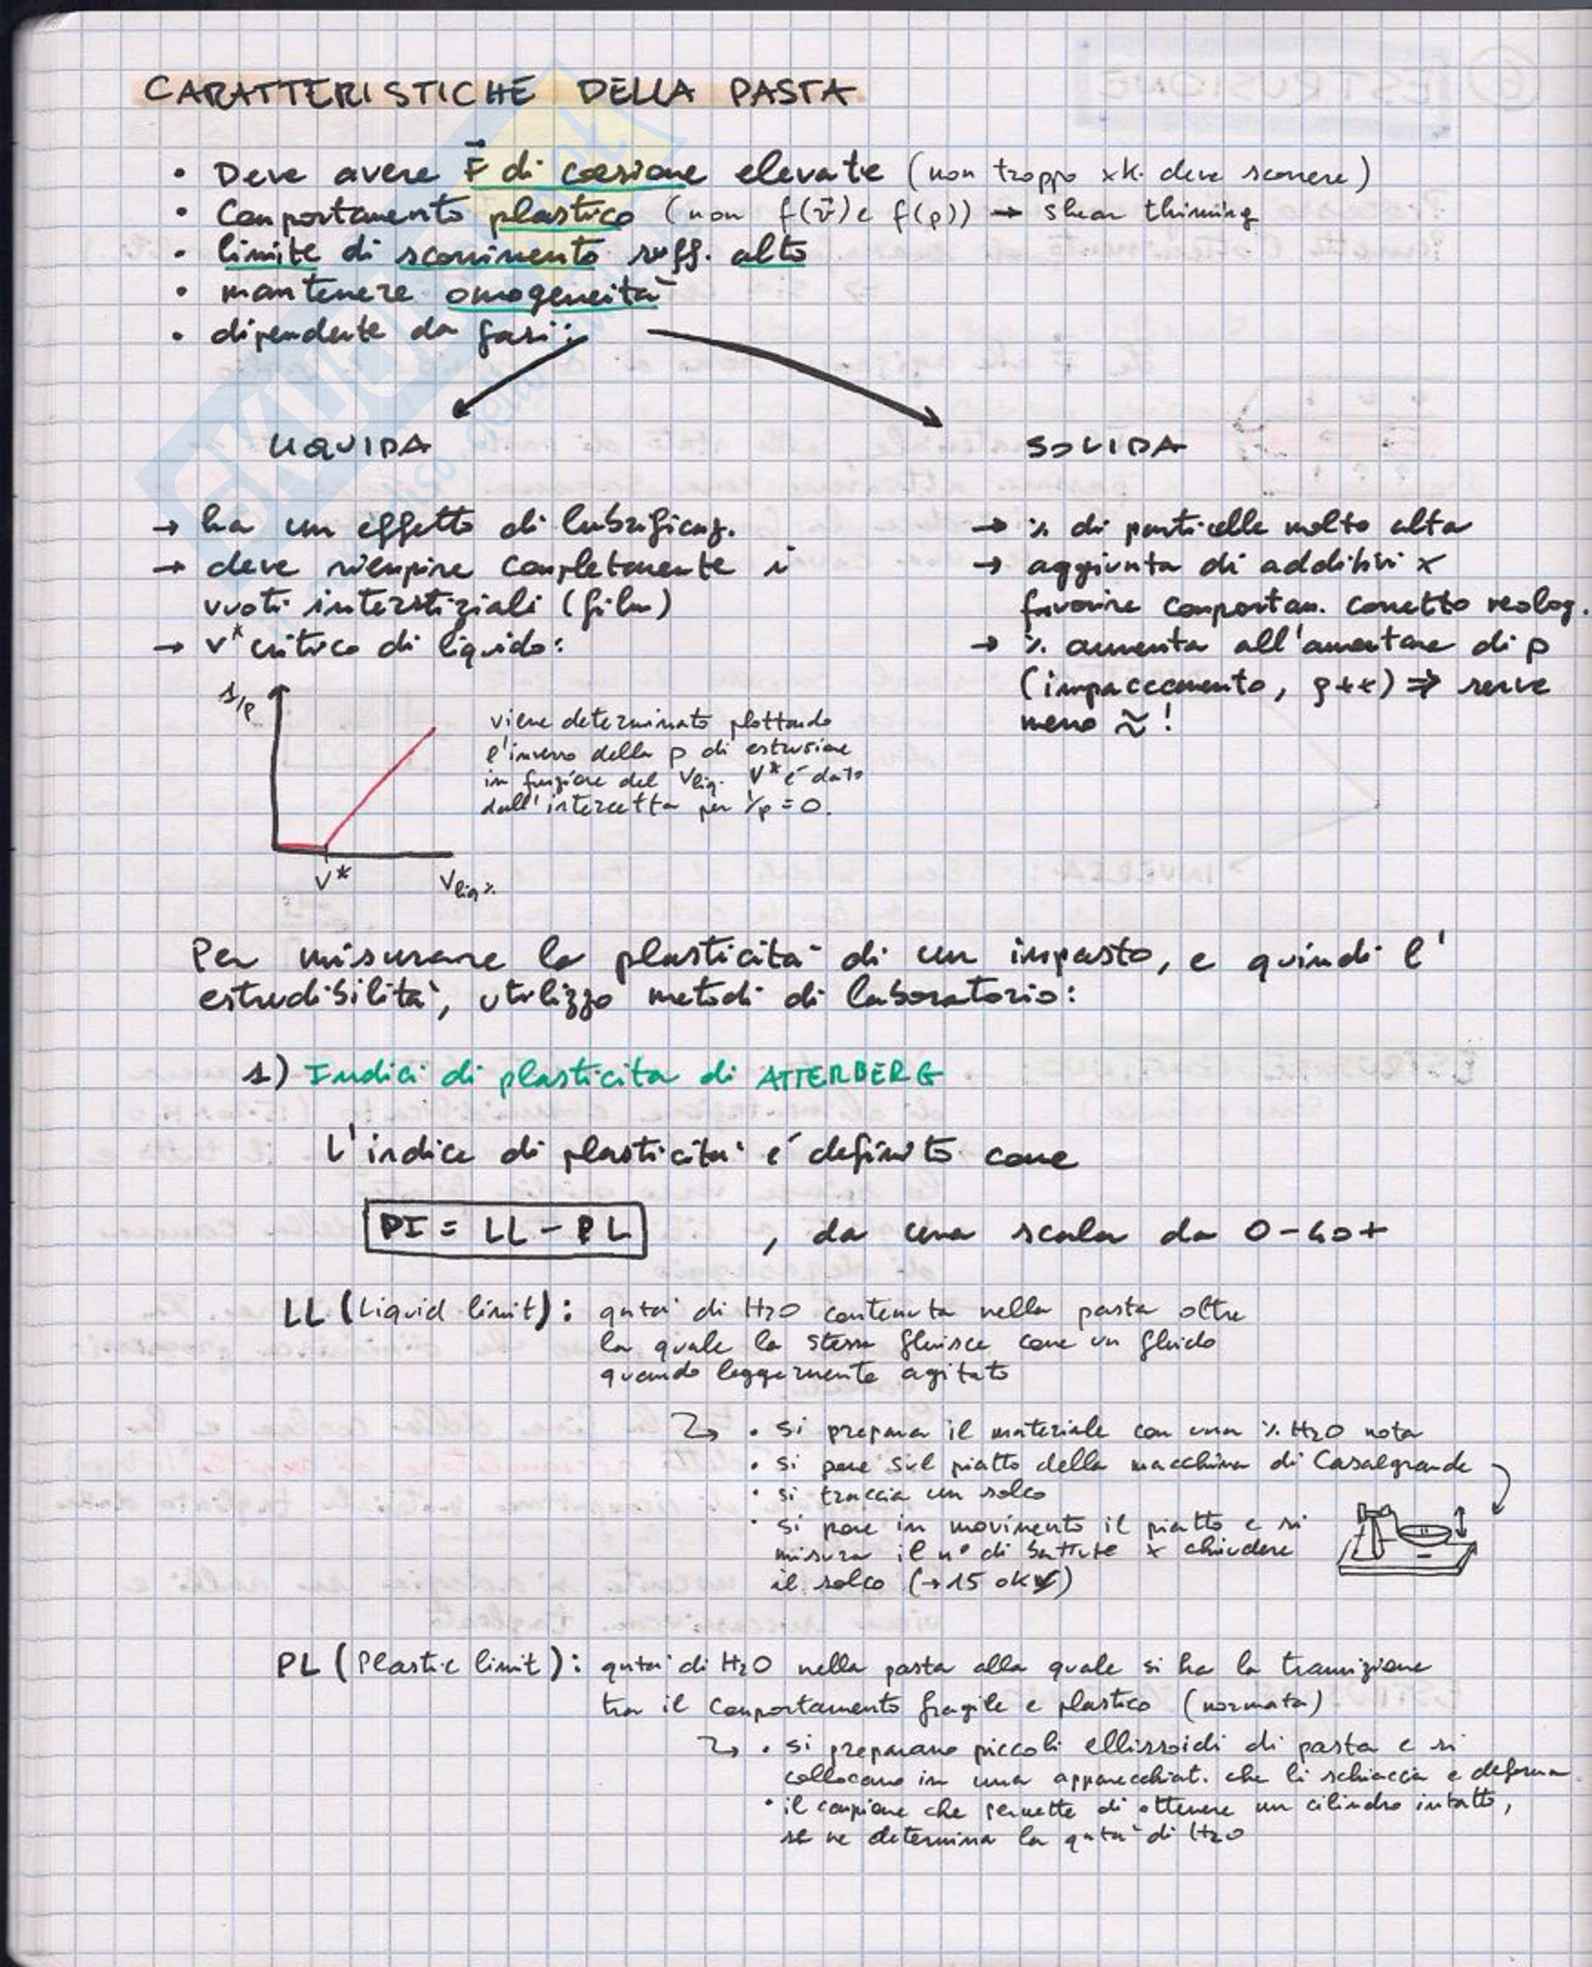 CARATTERISTICHE DELLA PASTA
• Deve avere F di coesione elevate (non troppo xk. deve scorrere)
• Comportamento plastico (non f(v) e f(p)) → shear thinning
• limite di scorrimento suff. alto
• mantenere omogeneità
• dipendente da fasi:
LIQUIDA
→ ha un effetto di lubrificaz.
→ deve riempire completamente i
vuoti interstiziali (film)
→ V* critico di liquido:
1/p
V*
Vliq%
viene determinato plottando
l'inverso della p di estrusione
in funzione del Vliq. V* è dato
dall'intercetta per 1/p = 0.
SOLIDA
→ % di particelle molto alta
→ aggiunta di additivi x
favorire comportam. corretto reolog.
→ % aumenta all'aumentare di ρ
(impaccamento, ρ++) ⇒ serve
meno ≈!
Per misurare la plasticità di un impasto, e quindi l'
estrudibilità, utilizzo metodi di laboratorio:
1) Indici di plasticità di ATTERBERG
L'indice di plasticità è definito come
PI = LL - PL , da una scala da 0-40+
LL (Liquid limit): qntà di H2O contenuta nella pasta oltre
la quale la stessa fluisce come un fluido
quando leggermente agitato
↳ • si prepara il materiale con una % H2O nota
• si pone sul piatto della macchina di Casalgrande
• si traccia un solco
• si pone in movimento il piatto e si
misura il n° di battute x chiudere
il solco (→15 ok)
PL (Plastic limit): qntà di H2O nella pasta alla quale si ha la transizione
tra il comportamento fragile e plastico (normata)
↳ • si preparano piccoli ellissoidi di pasta e si
collocano in una apparecchiat. che li schiaccia e deforma
• il campione che permette di ottenere un cilindro intatto,
se ne determina la qntà di H2O